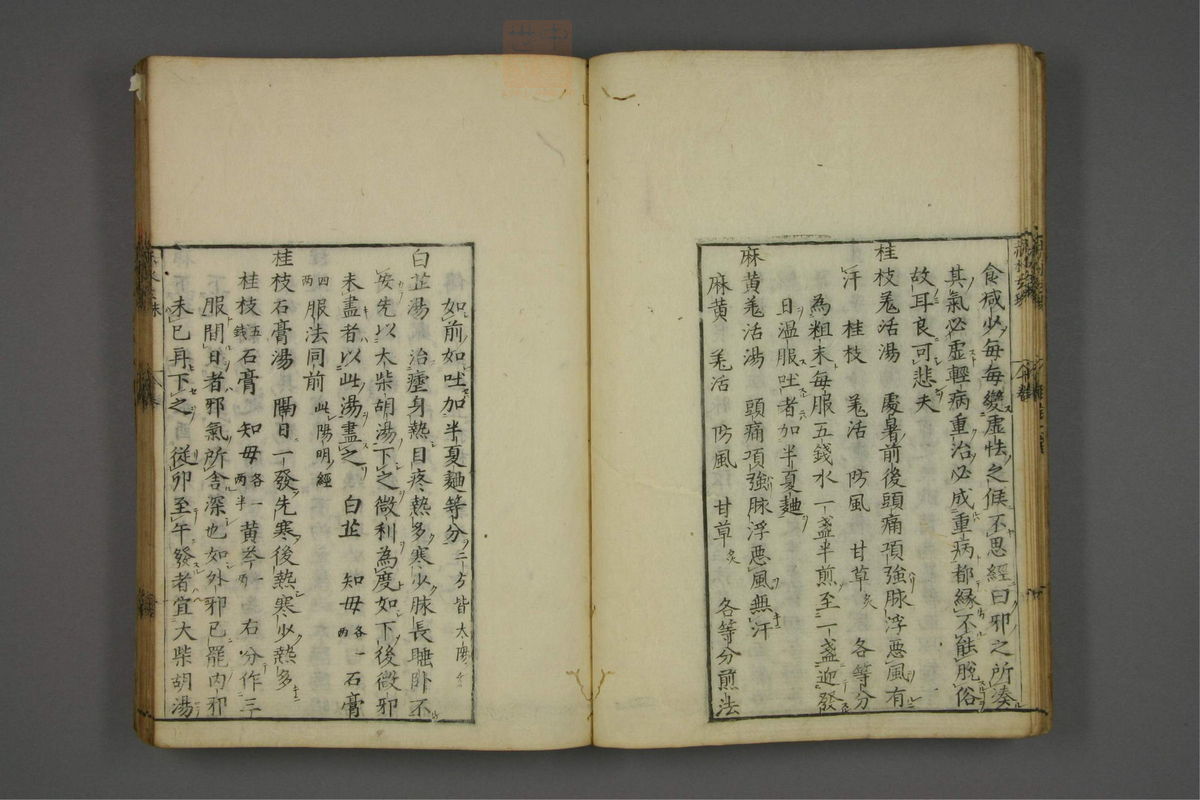 食減少每每變虛怯之候不思經曰邪之所湊
其氣必虛輕病重治必成重病都緣不能脫俗
故耳良可悲夫
桂枝羌活湯 處暑前後頭痛項強脉浮惡風有
汗 桂枝 羌活 防風 甘草炙 各等分
為粗末每服五錢水一盞半煎至一盞迎發
日溫服吐者加半夏麯
麻黃羌活湯 頭痛項強脉浮惡風無汗
麻黃 羌活 防風 甘草炙 各等分煎法
如前如吐加半夏麯等分二方皆太陽
白芷湯 治瘧身熱目疼熱多寒少脉長睡卧不
安先以大柴胡湯下之微利為度如下後微邪
未盡者以此湯盡之 白芷 知母各一兩 石膏
四兩 服法同前 此陽明經
桂枝石膏湯 隔日一發先寒後熱寒少熱多
桂枝五錢 石膏 知母各一兩半 黃芩一兩 右分作三
服間日者邪氣所舍深也如外邪已罷內邪
未已再下之 從卯至午發者宜大柴胡湯